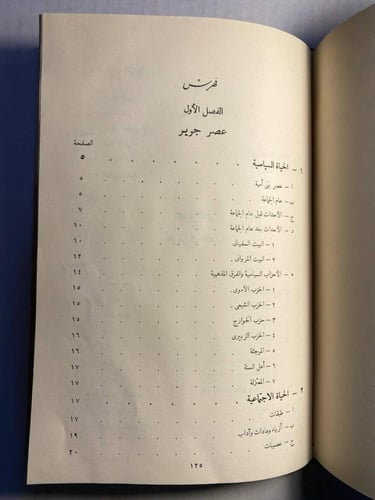 فهرس
الفصل الأول
عصر جرير
الصفحة
١ — الحياة السياسية . . . . . . ٥
ا — عصر بنى أمية . . . . . . ٥
ب — عام الجماعة . . . . . . ٥
ج — الأحداث قبل عام الجماعة . . . . . ٧
د — الأحداث بعد عام الجماعة . . . . . ١٠
١ — البيت السفيانى . . . . . ١٠
٢ — البيت المروانى . . . . . ١٢
ه — الأحزاب السياسية والفرق المذهبية . . . . ١٤
١ — الحزب الأموى . . . . . ١٥
٢ — الحزب الشيعى . . . . . ١٥
٣ — حزب الخوارج . . . . . ١٥
٤ — الحزب الزبيرى . . . . . ١٦
٥ — المرجئة . . . . . ١٦
٦ — أهل السنة . . . . . ١٧
٧ — المعتزلة . . . . . ١٧
٢ — الحياة الاجتماعية . . . . . . ١٧
ا — طبقات . . . . . . ١٧
ب — أزياء وعادات وآداب . . . . . ١٩
ج — عصبيات . . . . . . ٢٠
١٢٥